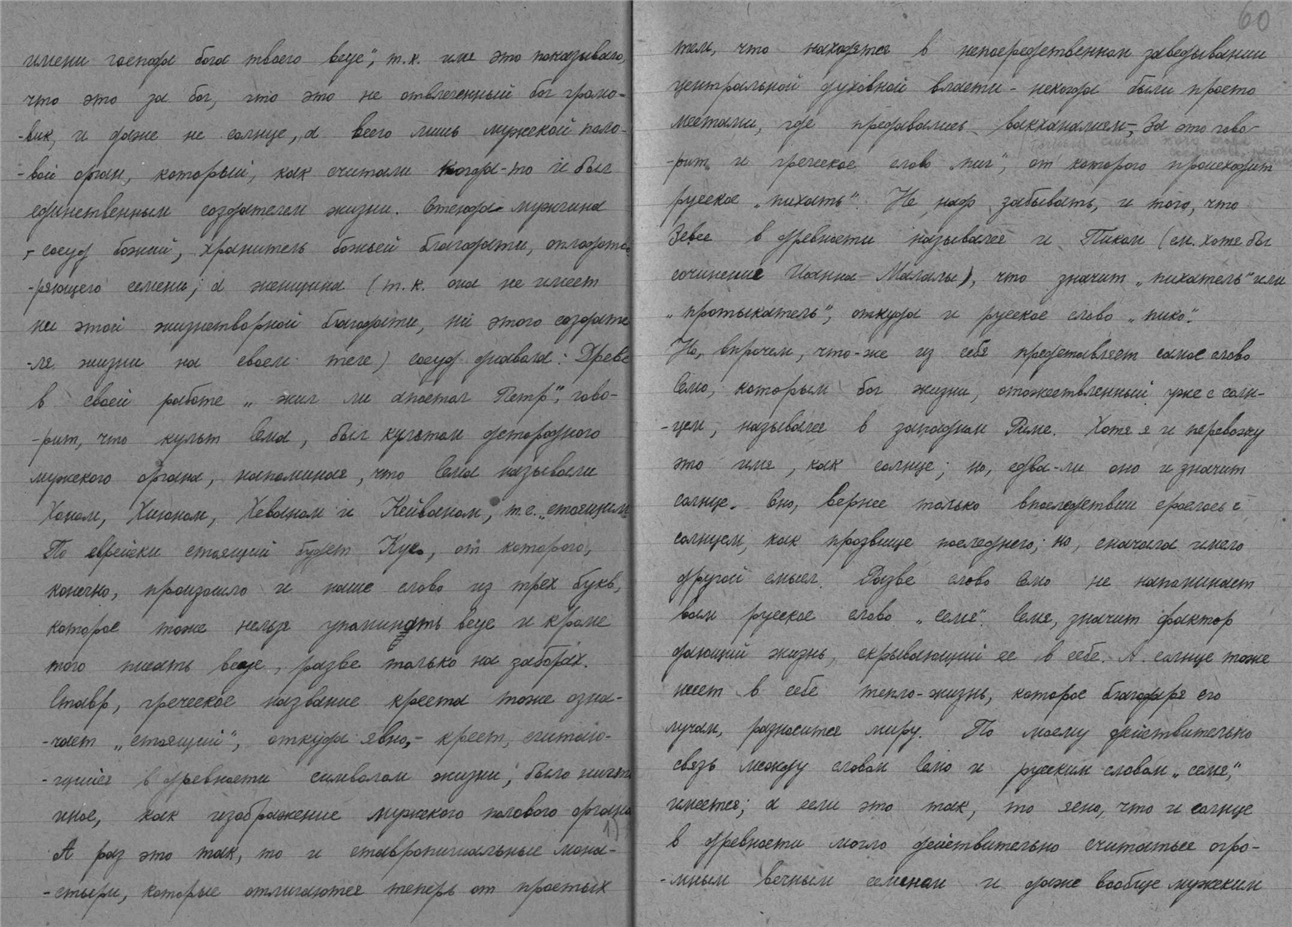 имени господа бога твоего всуе", т.к. имя это показывало,
что это за бог, что это не отвлеченный бог громо-
-вик, и даже не солнце, а всего лишь мужской поло-
-вой орган, который, как считали когда-то и был
единственным создателем жизни. Отсюда мужчина
- сосуд божий, хранитель божьей благодати, оплодотво-
-ряющего семени; а женщина (т.к. она не имеет
ни этой жизнетворной благодати, ни этого создате
-ля жизни на своем теле) сосуд диавола. Древс
в своей работе „жил ли апостол Петр", гово-
-рит, что культ Сема, был культом детородного
мужского органа, напоминая, что Сема называли
Хоном, Хиюном, Хеваном и Кейваном, т.е. „стоящим
По еврейски стоящий будет Кую, от которого,
конечно, произошло и наше слово из трех букв,
которое тоже нельзя упоминать всуе и кроме
того писать везде, разве только на заборах.
Ставр, греческое название креста тоже озна-
-чает „стоящий", откуда явно, - крест, считаю-
-щийся в древности символом жизни, было ничто
иное, как изображение мужского полового органа
1)
А раз это так, то и ставропигиальные мона-
-стыри, которые отличаются теперь от простых
60
тем, что находятся в непосредственном заведывании
центральной духовной власти - некогда были просто
местами, где предавались вакханалиям, За это гово-
-рит и греческое слово „пиг", от которого происходит
русское „пихать". Не надо забывать, и того, что
Зевс в древности назывался и Пиком (см. хотя бы
сочинение Иоанна-Малалы), что значит „пихатель" или
„протыкатель", откуда и русское слово „пика".
Но, впрочем, что-же из себя представляет самое слово
Семо, которым бог жизни, отожествленный уже с солн-
-цем, назывался в западном Риме. Хотя я и перевожу
это имя, как солнце; но, едва-ли оно и значит
солнце. Оно, вернее только впоследствии срослось с
солнцем, как прозвище последнего; но, сначала имело
другой смысл. Разве слово Семо не напоминает
вам русское слово „семя". Семя, значит фактор
дающий жизнь, скрывающий ее в себе. А солнце тоже
несет в себе тепло-жизнь, которое благодаря его
лучам, разносится миру. По моему действительно
связь между словом Семо и русским словом „семя",
имеется; а если это так, то ясно, что и солнце
в древности могло действительно считаться огро-
-мным вечным семенем и даже вообще мужским